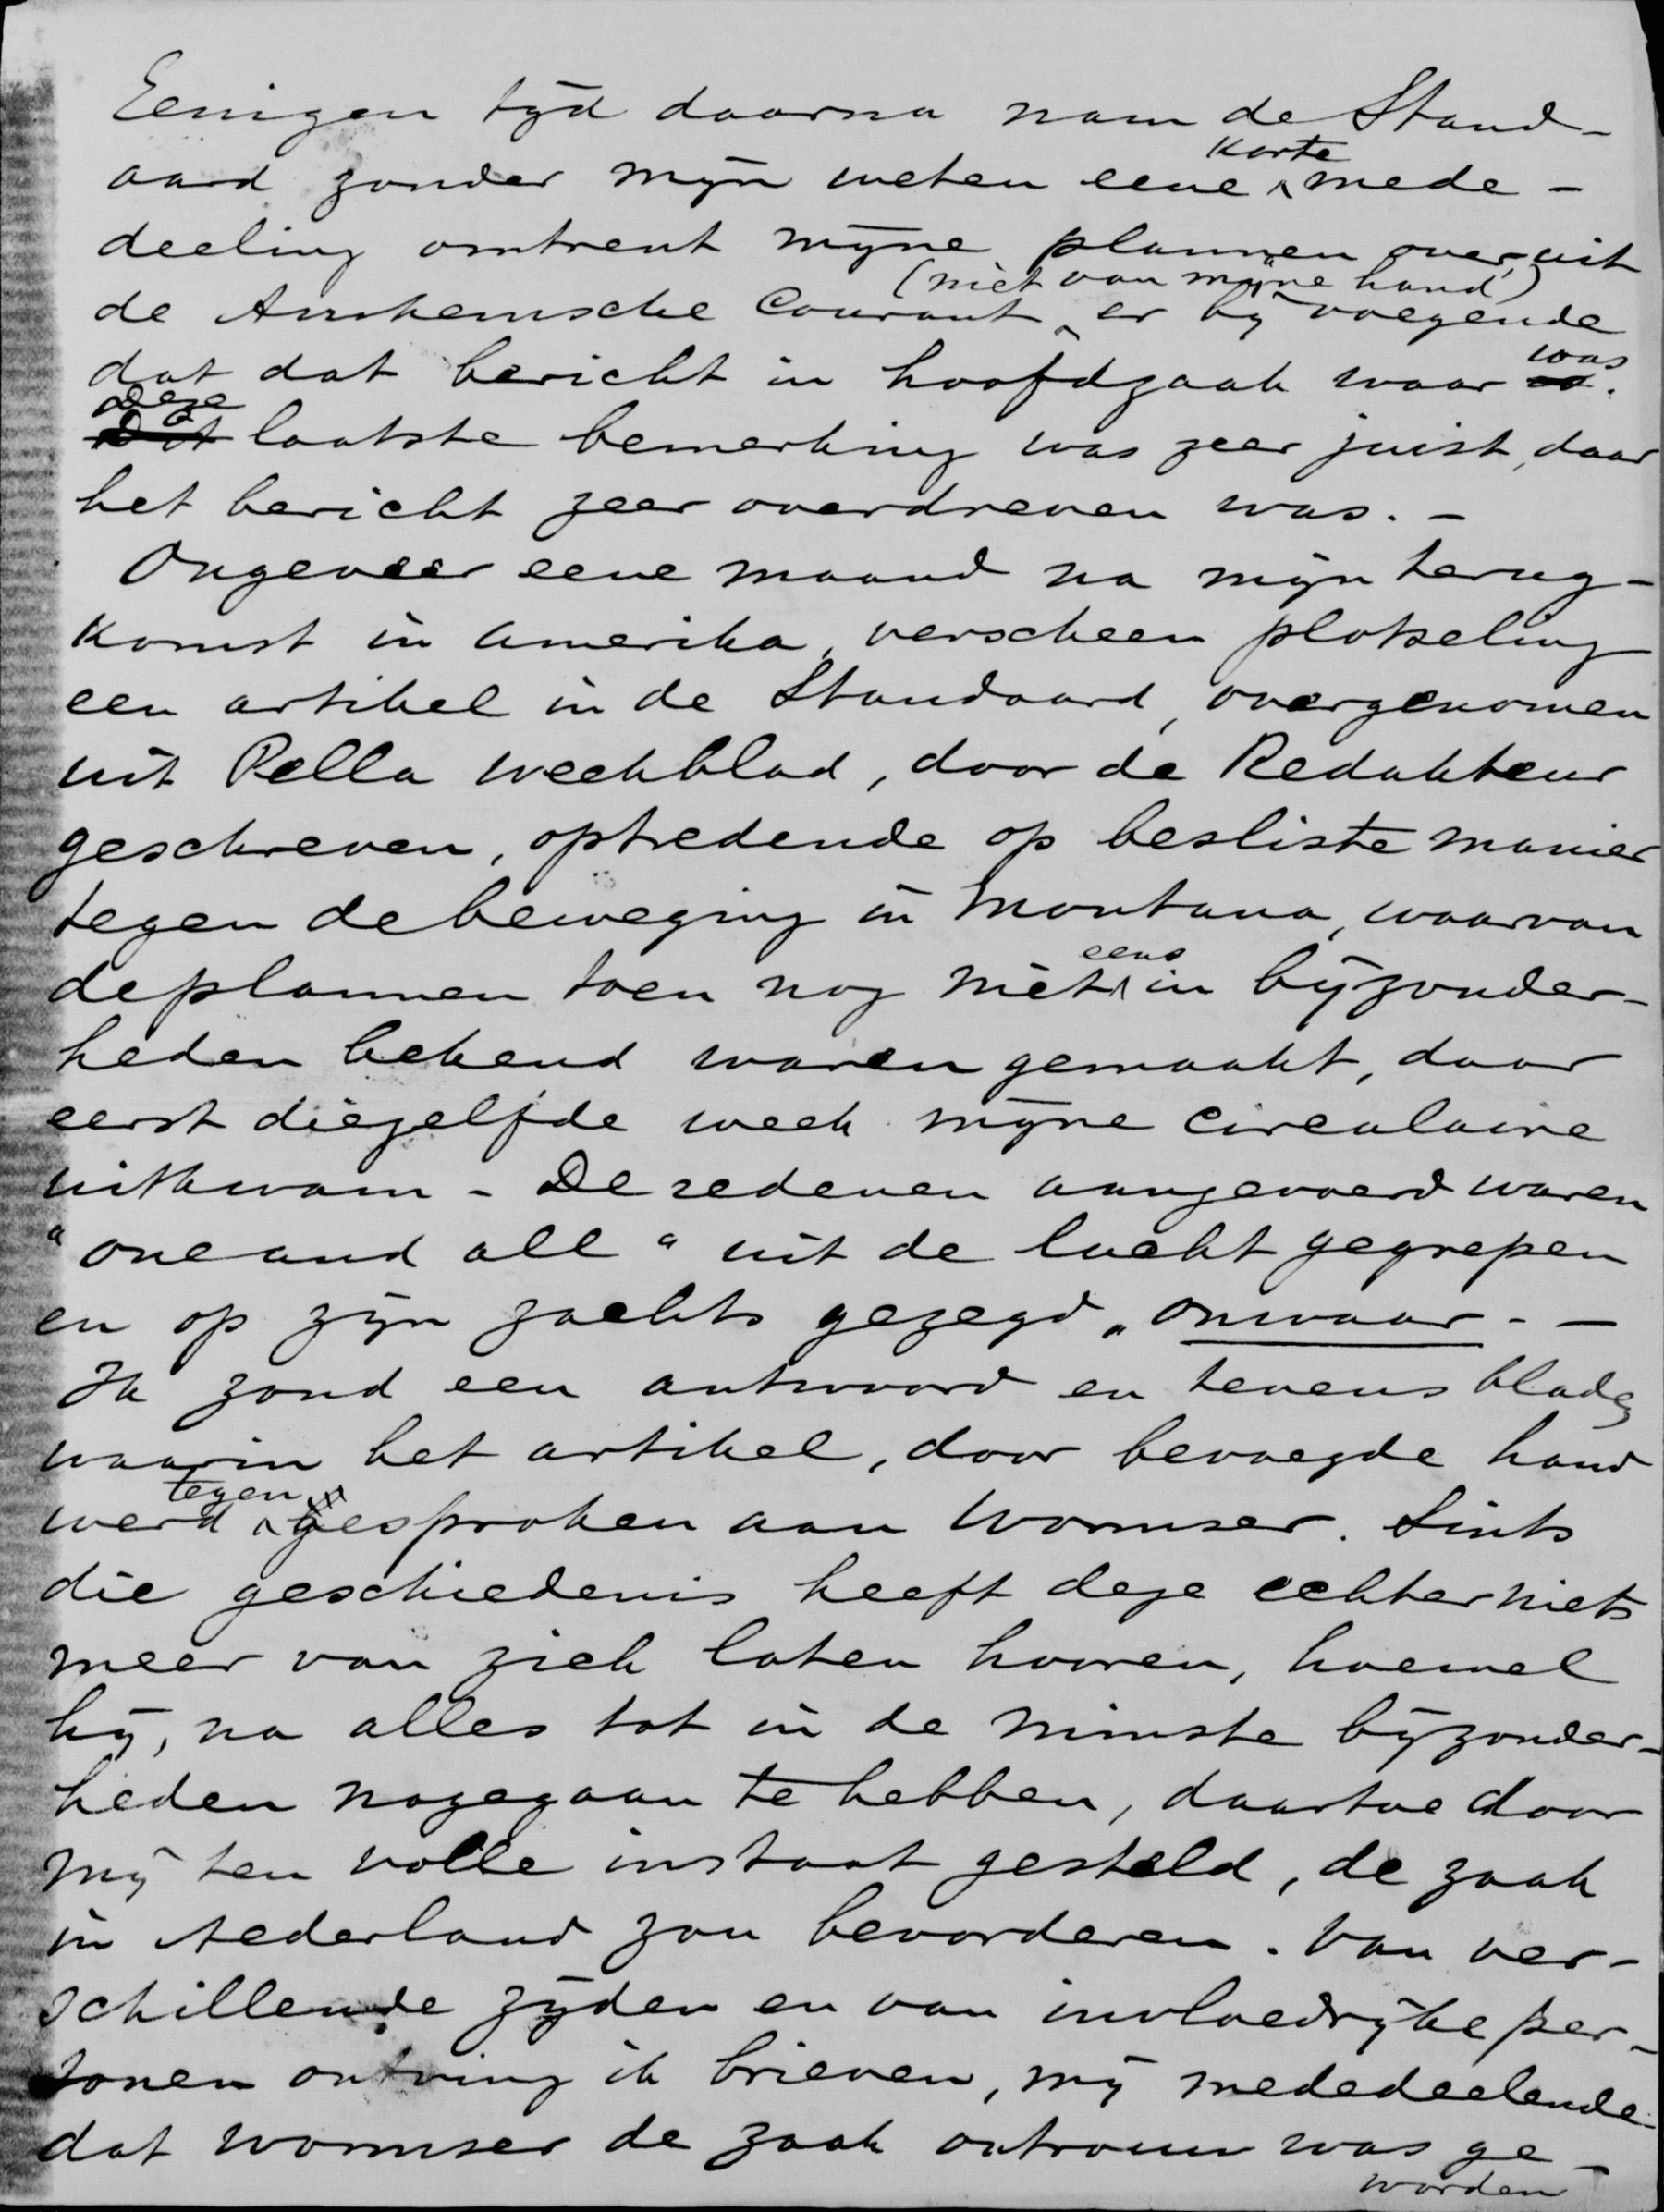 Eenigen tijd daarna nam de Stand-
aard zonder mijn weten eene korte mede-
deeling omtrent mijne plannen over, uit
de Arnhemsche Courant (niet van mijne hand) er bij voegende
dat dat bericht in hoofdzaak waar was.
Deze laatste bemerking was zeer juist, daar
het bericht zeer overdreven was. -
Ongeveer eene maand na mijn terug-
komst in Amerika, verscheen plotseling
een artikel in de Standaard, overgenomen
uit Pella weekblad, door de Redakteur
geschreven, optredende op besliste manier
tegen de beweging in Montana, waarvan
de plannen toen nog niet eens in bijzonder-
heden bekend waren gemaakt, daar
eerst diezelfde week mijne circulaire
uitkwam - De redenen aangevoerd waren
"one and all" uit de lucht gegrepen
en op zijn zachts gezegd "onwaar. -
Ik zond een antwoord en tevens blade
waarin het artikel, door bevoegde hand
werd tegengesproken aan Wormser. Sints
die geschiedenis heeft deze echter niets
meer van zich laten hooren, hoewel
hij, na alles tot in de minste bijzonder-
heden nagegaan te hebben, daartoe door
mij ten volle instaat gesteld, de zaak
in Nederland zou bevorderen. Van ver-
schillende zijden en van invloedrijke per-
sonen ontving ik brieven, mij mededeelende
dat Wormser de zaak ontrouw was ge-
worden